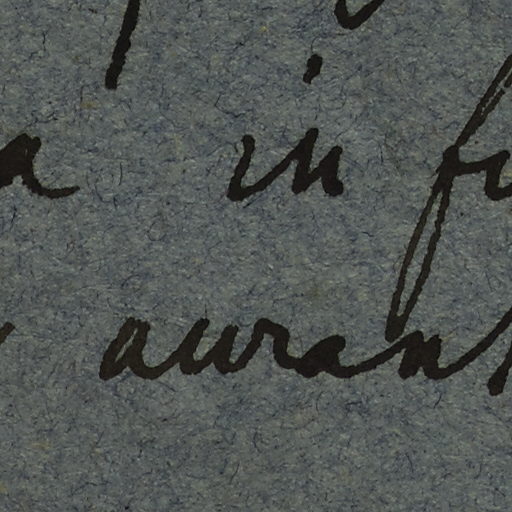 a in fu
aurant